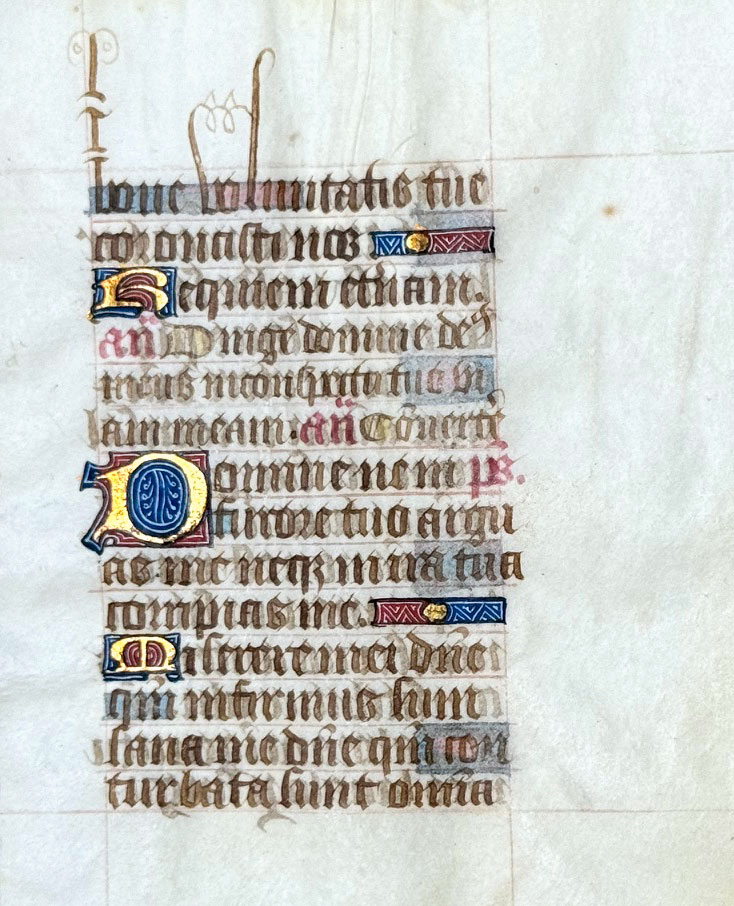 bone voluntatis tue
coronasti nos.
Requiem eternam.
an̄ Dirige domine deus
meus in conspectu tuo vi
am meam. an̄ Conuert
Domine ne in ps.
furore tuo argu
as me neqȝ in ira tua
corripias me.
Miserere mei dn̄e
qm̄ infirmus sum
sana me dn̄e qm̄ con
turbata sunt omīa